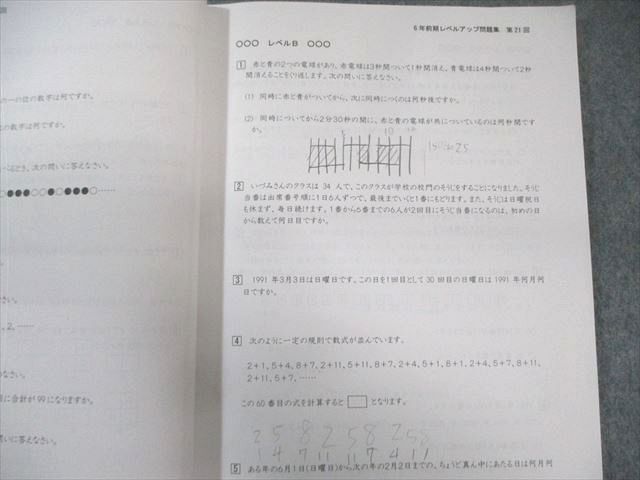 6年前期レベルアップ問題集 第21回
○○○ レベルB ○○○
1 赤と青の2つの電球があり、赤電球は3秒間ついて1秒間消え、青電球は4秒間ついて2秒
間消えることをくり返します。次の問いに答えなさい。
(1) 同時に赤と青がついてから、次に同時につくのは何秒後ですか。
(2) 同時についてから2分30秒の間に、赤と青の電球が共についているのは何秒間です
か。
2 いづみさんのクラスは 34 人で、このクラスが学校の校門のそうじをすることになりました。そうじ
当番は出席番号順に1日6人ずつで、最後までいくと1番にもどります。また、そうじは日曜祝日
も休まず、毎日続けます。1番から6番までの6人が2回目にそうじ当番になるのは、初めの日
から数えて何日目ですか。
3 1991 年3月3日は日曜日です。この日を1回目として 30 回目の日曜日は 1991 年何月何
日ですか。
4 次のように一定の規則で数式が並んでいます。
2+1、5+4、8+7、2+11、5+11、8+7、2+4、5+1、8+1、2+4、5+7、8+11、
2+11、5+7、……
この 60 番目の式を計算すると□となります。
2 5 8 2 5 8 2 5 8
1 4 7 11 11 7 4 1 1
5 ある年の6月1日(日曜日)から次の年の2月2日までの、ちょうど真ん中にあたる日は何月何
の一の位の数字は何ですか。
の数字は何ですか。
べるとき、次の問いに答えなさい。
なさい。
1、2、……
なさい。
に合計が 99 になりますか。
問いに答えなさい。